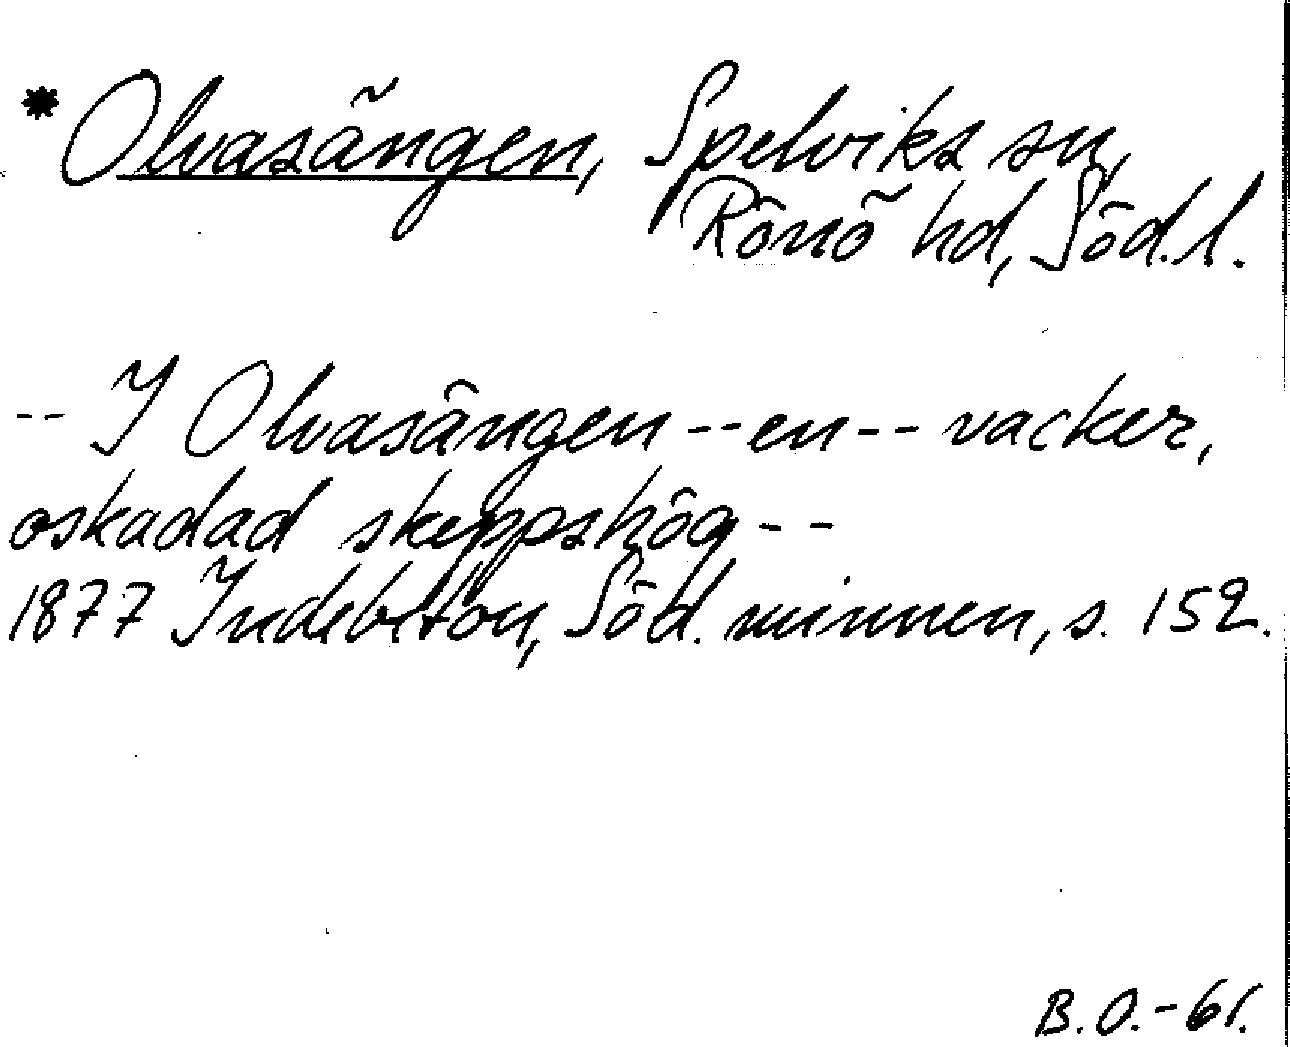 * Olvasängen, Spelviks sn,
Rönö hd, Söd.l.
-- I Olvasängen -- en -- vacker,
oskadad skeppshög --
1877 Indebetou, Söd. minnen, s. 152.
B.O.-61.